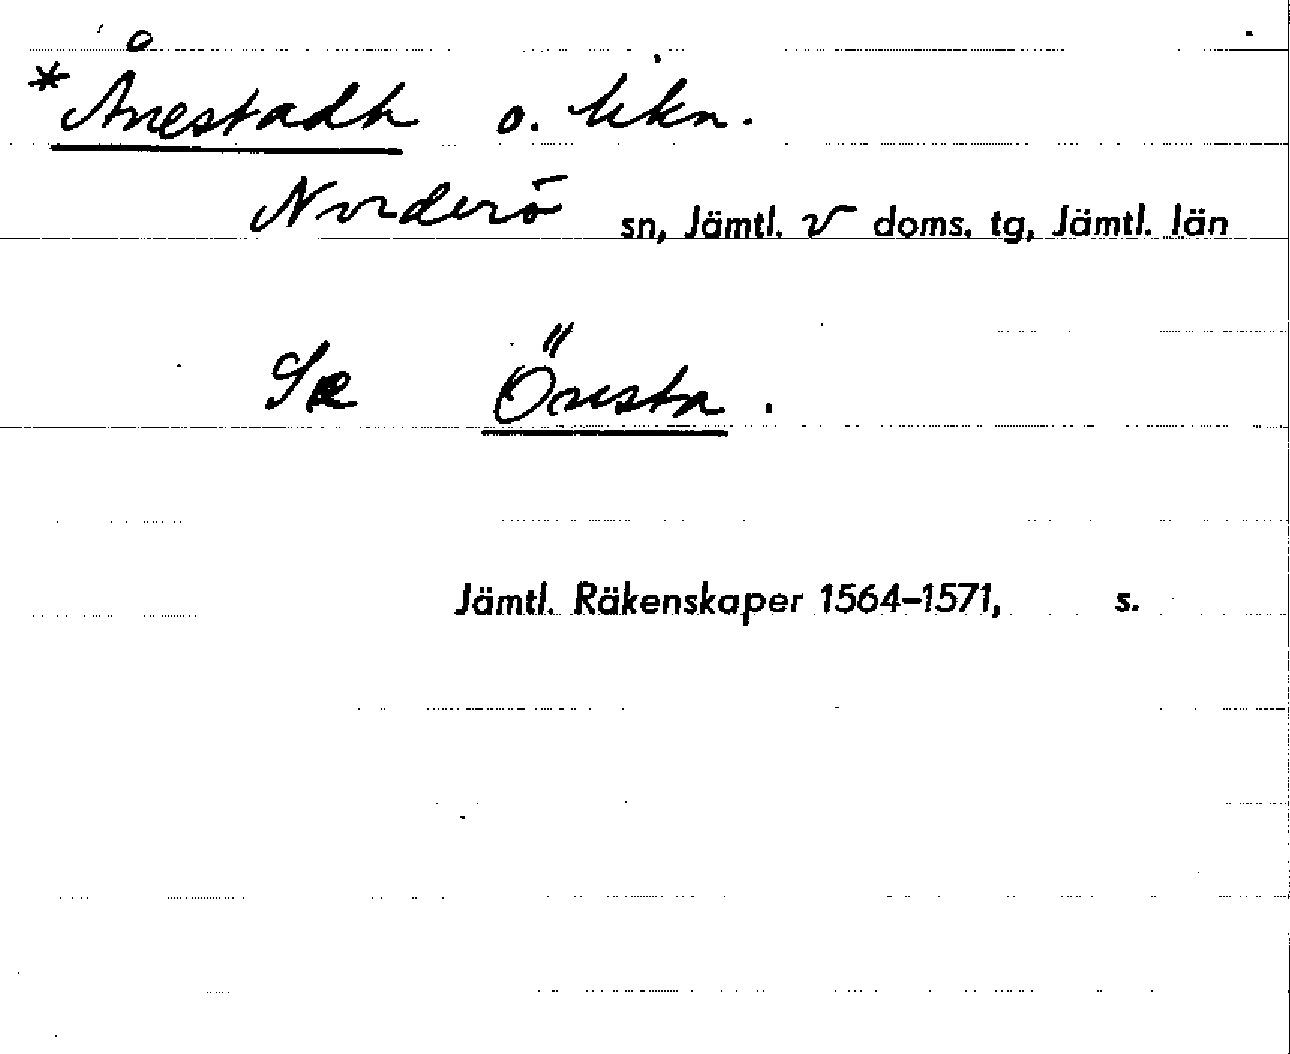 *Ånestadh o. likn.
Norderö sn, Jämtl. v doms. tg, Jämtl. län
Se Önesta.
Jämtl. Räkenskaper 1564-1571, s.